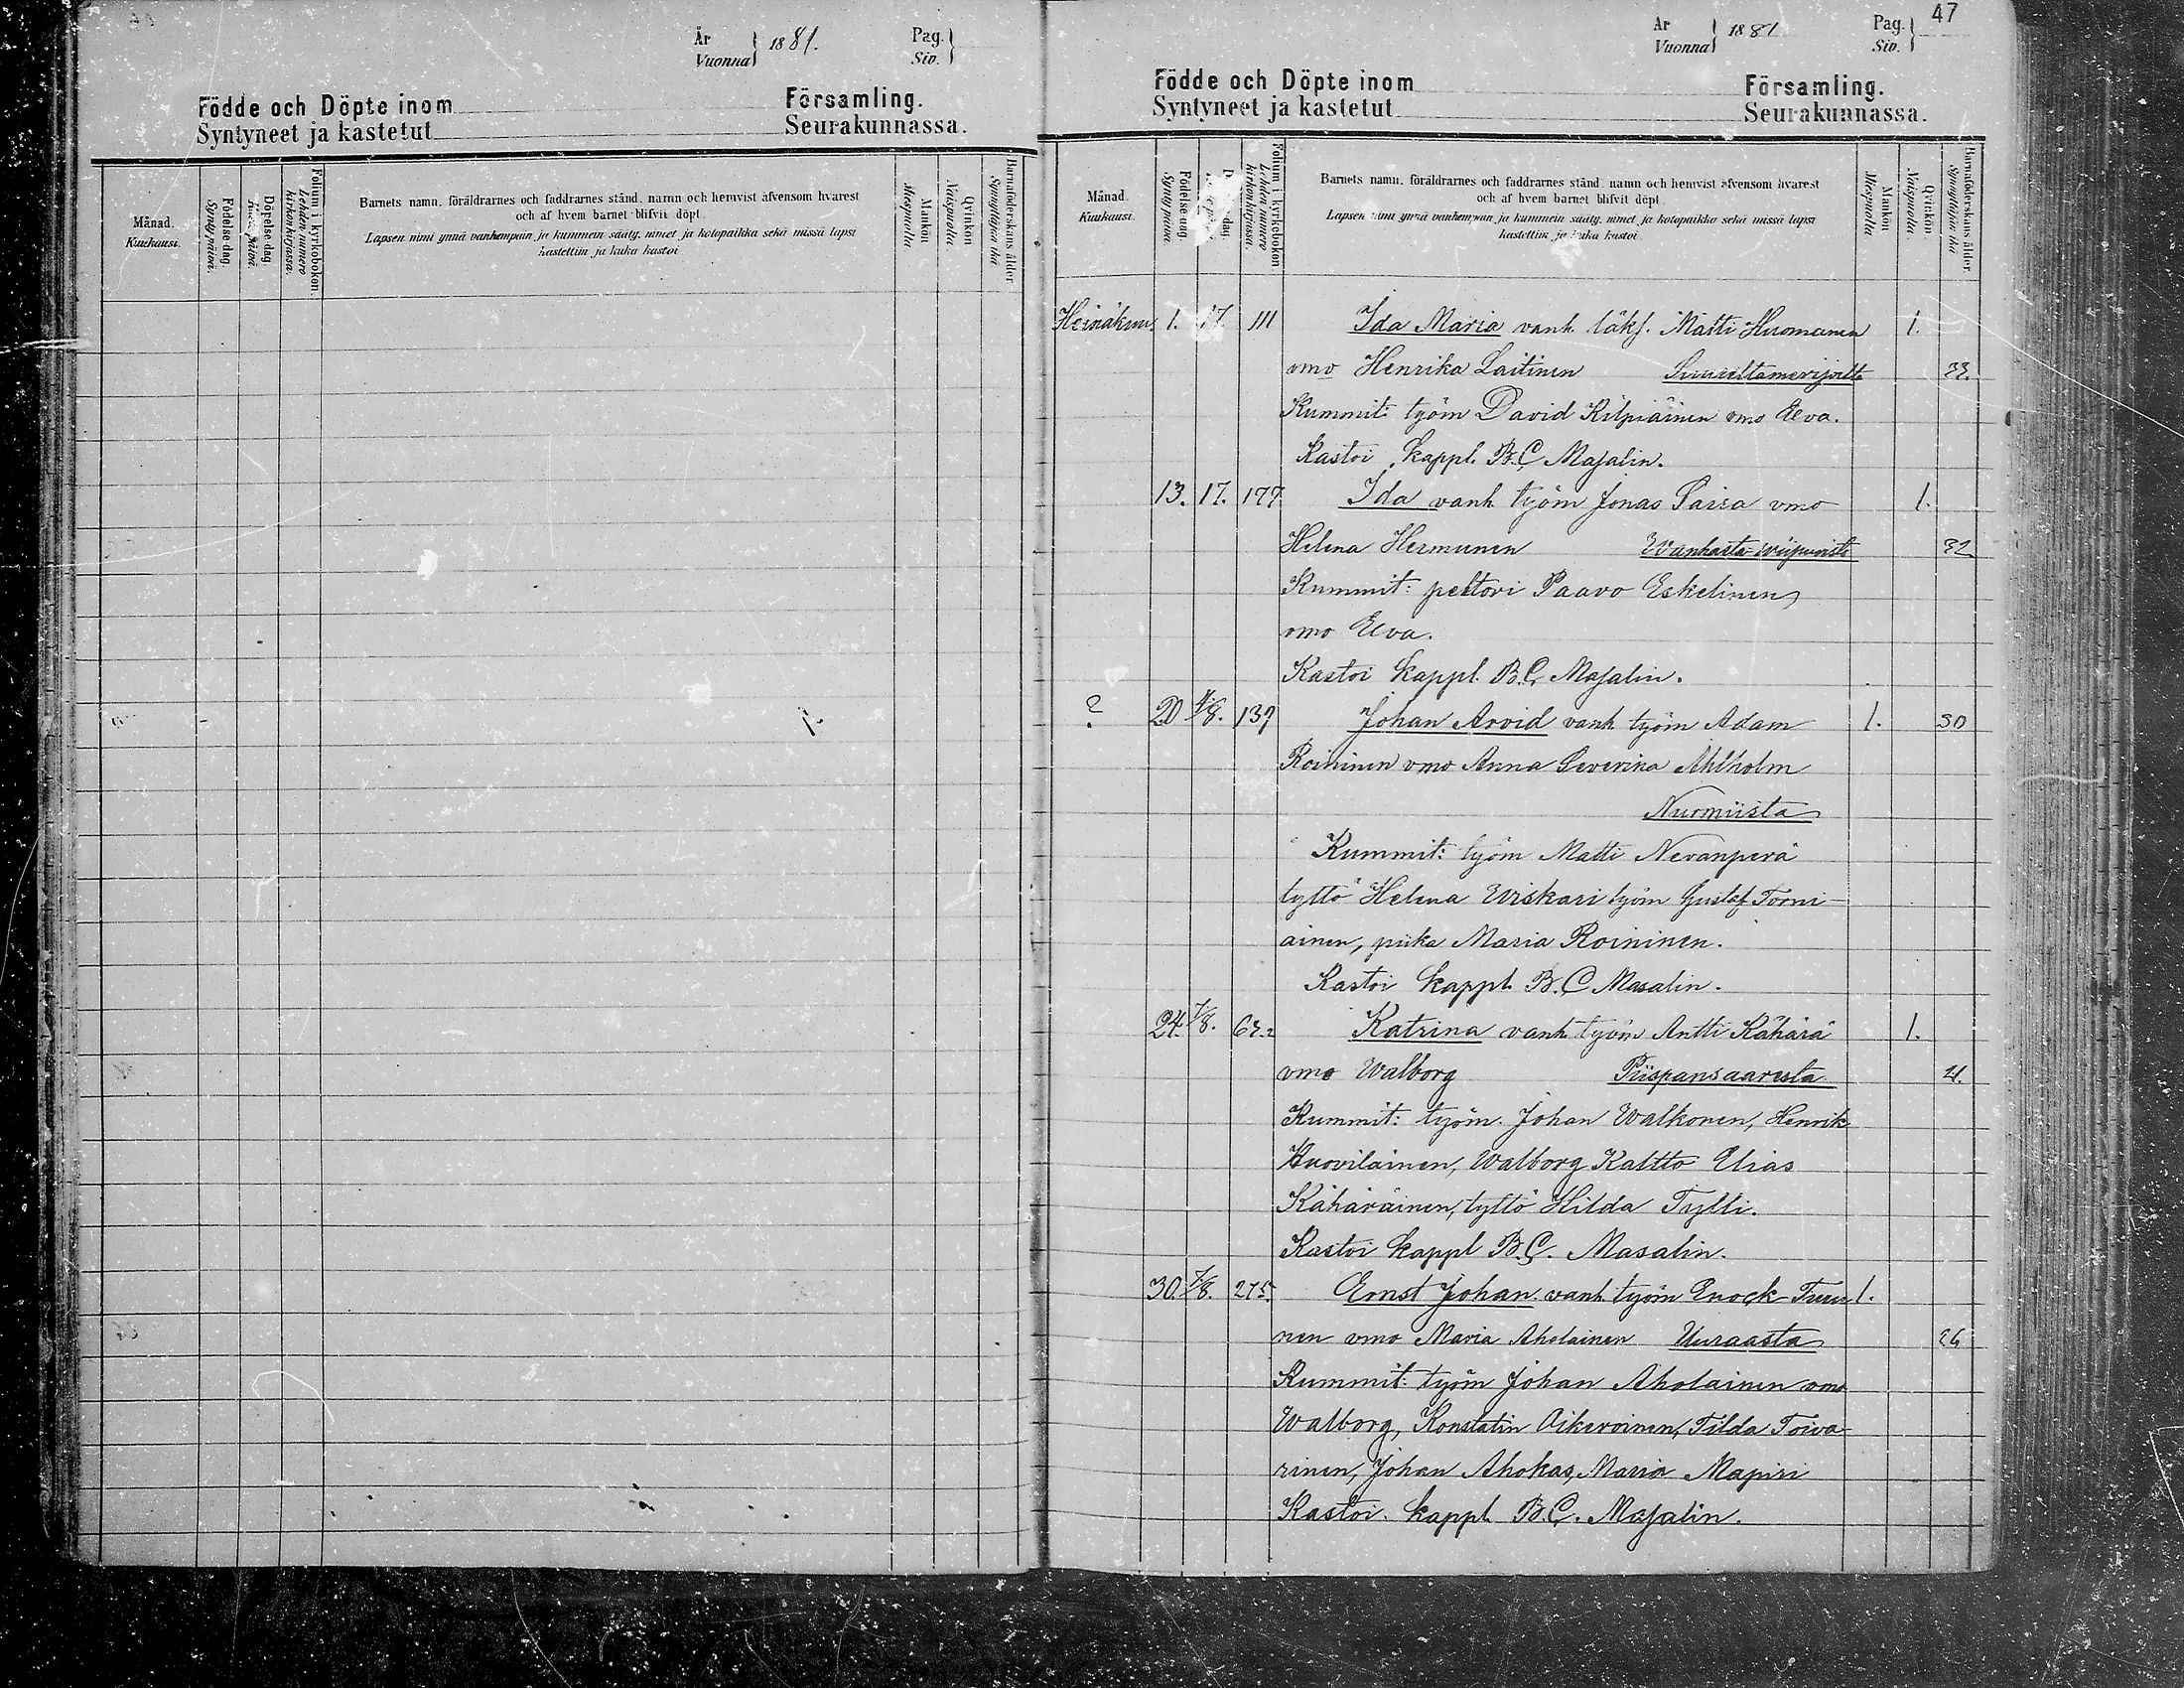 År
Vuonna } 1881.
Pag.
Siv. }
Födde och Döpte inom Församling.
Syntyneet ja kastetut Seurakunnassa.
Månad.
Kuukausi.
Födelse dag.
Syntypäivä.
Döpelse dag.
Folium i kyrkoboken.
Lehden numero kirkonkirjassa.
Barnets namn, föräldrarnes och faddrarnes stånd, namn och hemvist äfvensom hvarest
och af hvem barnet blifvit döpt.
Lapsen nimi ynnä vanhempain ja kummein sääty, nimet ja kotopaikka sekä missä lapsi
kastettiin ja kuka kastoi
Mankön
Miespuolia
Qvinkön
Naispuolia.
Barnaföderskans ålder
Synnyttäjän ikä
47
År
Vuonna } 1881
Pag.
Siv. }
Födde och Döpte inom Församling.
Syntyneet ja kastetut Seurakunnassa.
Månad.
Kuukausi.
Födelse dag.
Syntypäivä.
Folium i kyrkoboken.
Lehden numero kirkonkirjassa.
Barnets namn, föräldrarnes och faddrarnes stånd, namn och hemvist äfvensom hvarest
och af hvem barnet blifvit döpt.
Lapsen nimi ynnä vanhempain ja kummein sääty, nimet ja kotopaikka sekä missä lapsi
kastettiin ja kuka kastoi
Mankön
Miespuolia
Qvinkön
Naispuolia.
Barnaföderskans ålder.
Synnyttäjän ikä
Heinäkuu 1. 17. 111 Ida Maria vanh. läks. Matti Huomanen 1.
vmo Henrika Laitinen Suureltamerijoelta 33.
Kummit: työm David Kilpiäinen vmo Eeva.
Kastoi kappl. B.C Masalin.
13. 17. 177. Ida vanh. työm Jonas Saira vmo 1.
Helena Hermunen Wanhasta wiipurista 32
Kummit: peltori Paavo Eskelinen
vmo Eeva.
Kastoi kappl. B.C. Masalin.
? 20 /8. 139 Johan Arvid vanh. työm Adam 1. 30
Roininen vmo Anna Severina Ahlholm
Nurmiista
Kummit: työm Matti Nevanperä
tyttö Helena Wiskari työm Gustaf Torni-
ainen, piika Maria Roininen.
Kastoi kappl. B.C Masalin.
24. 7/8. Katrina vanh. työm Antti Kähärä 1.
vmo Walborg Piispansaaresta
Kummit: työm. Johan Walkonen, Henrik
Huovilainen, Walborg Kaltto Elias
Kähäräinen, tyttö Hilda Tylli.
Kastoi kappl B.C. Masalin.
30. 7/8. 275. Ernst Johan vanh. työm Enock Turu 1.
nen vmo Maria Aholainen Uuraasta 26
Kummit: työm Johan Aholainen vmo
Walborg, Konstatin Oikeroinen, Tilda Toiva-
rinen, Johan Ahokas, Maria Mapiri
Kastoi. kappl. B.C. Masalin.